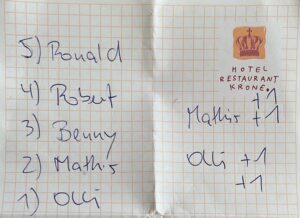 5) Ronald
4) Robert
3) Benny
2) Mathis
1) Olli
HOTEL
RESTAURANT
KRONE
+1
Mathis +1
Olli +1
+1